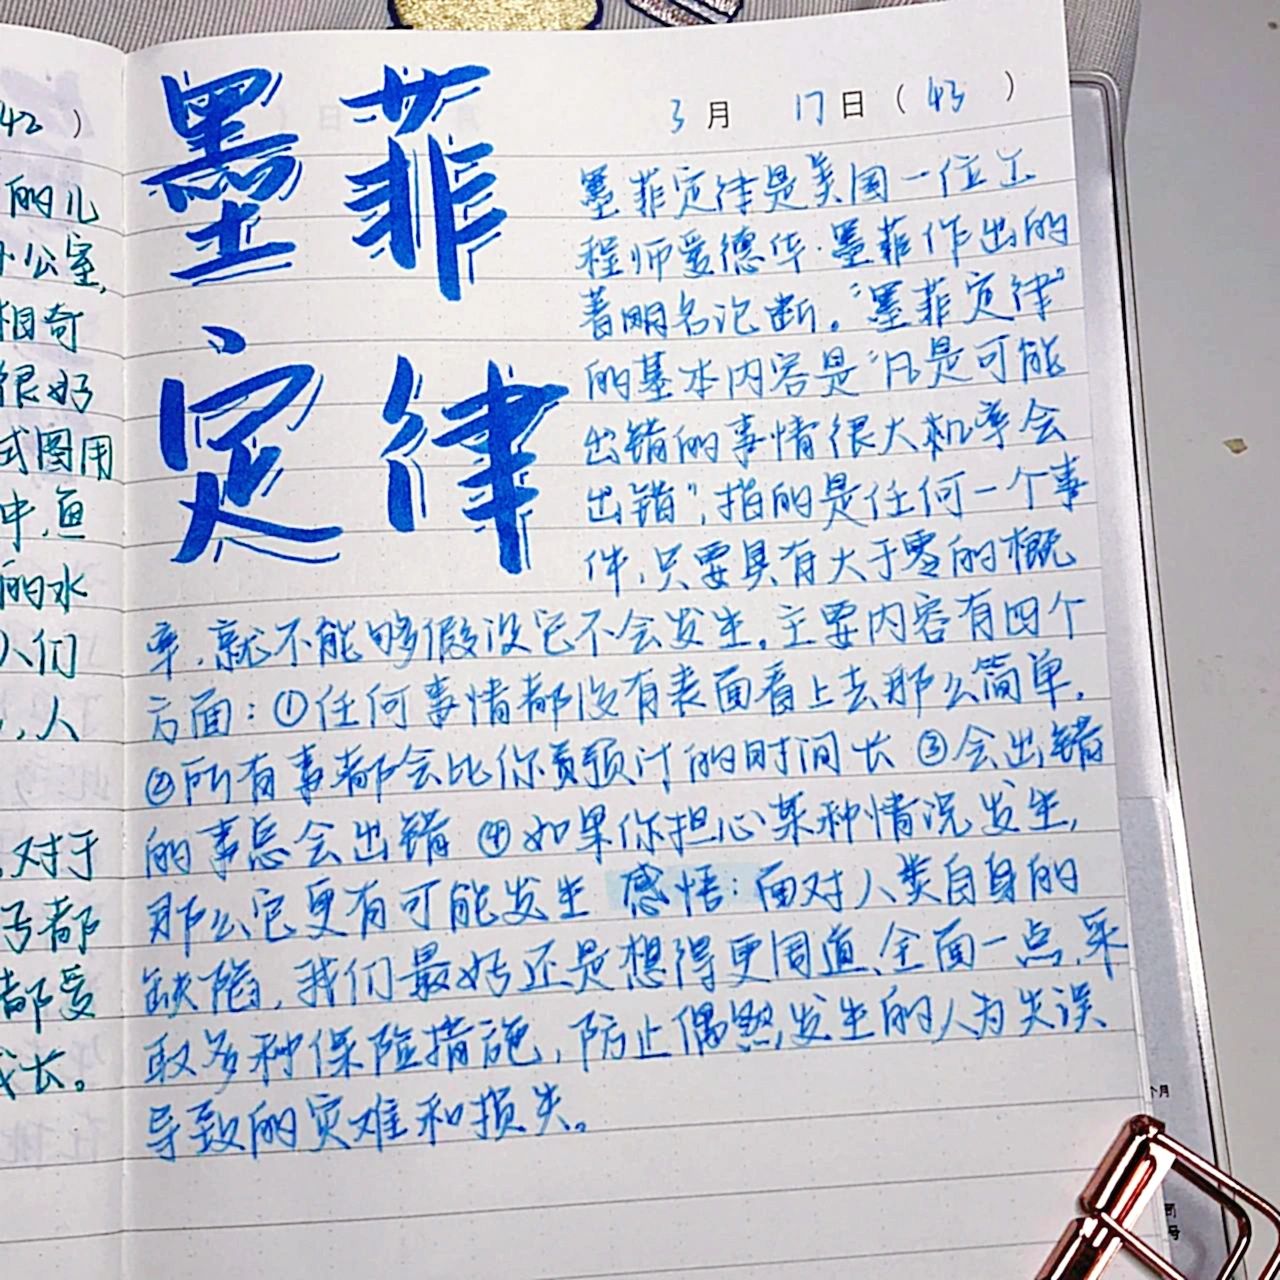 42）
的儿
公室,
相奇
很好
式图用
中,鱼
的水
人们
,人
对于
都
都受
长。
墨菲
定律
3月 17日（43）
墨菲定律是美国一位工
程师爱德华·墨菲作出的
著明名论断。“墨菲定律”
的基本内容是“凡是可能
出错的事情很大机率会
出错”,指的是任何一个事
件,只要具有大于零的概
率,就不能够假设它不会发生。主要内容有四个
方面:①任何事情都没有表面看上去那么简单.
②所有事都会比你预计的时间长 ③会出错
的事总会出错 ④如果你担心某种情况发生,
那么它更有可能发生 感悟:面对人类自身的
缺陷,我们最好还是想得更周道、全面一点,采
取多种保险措施,防止偶然发生的人为失误
导致的灾难和损失。
个月